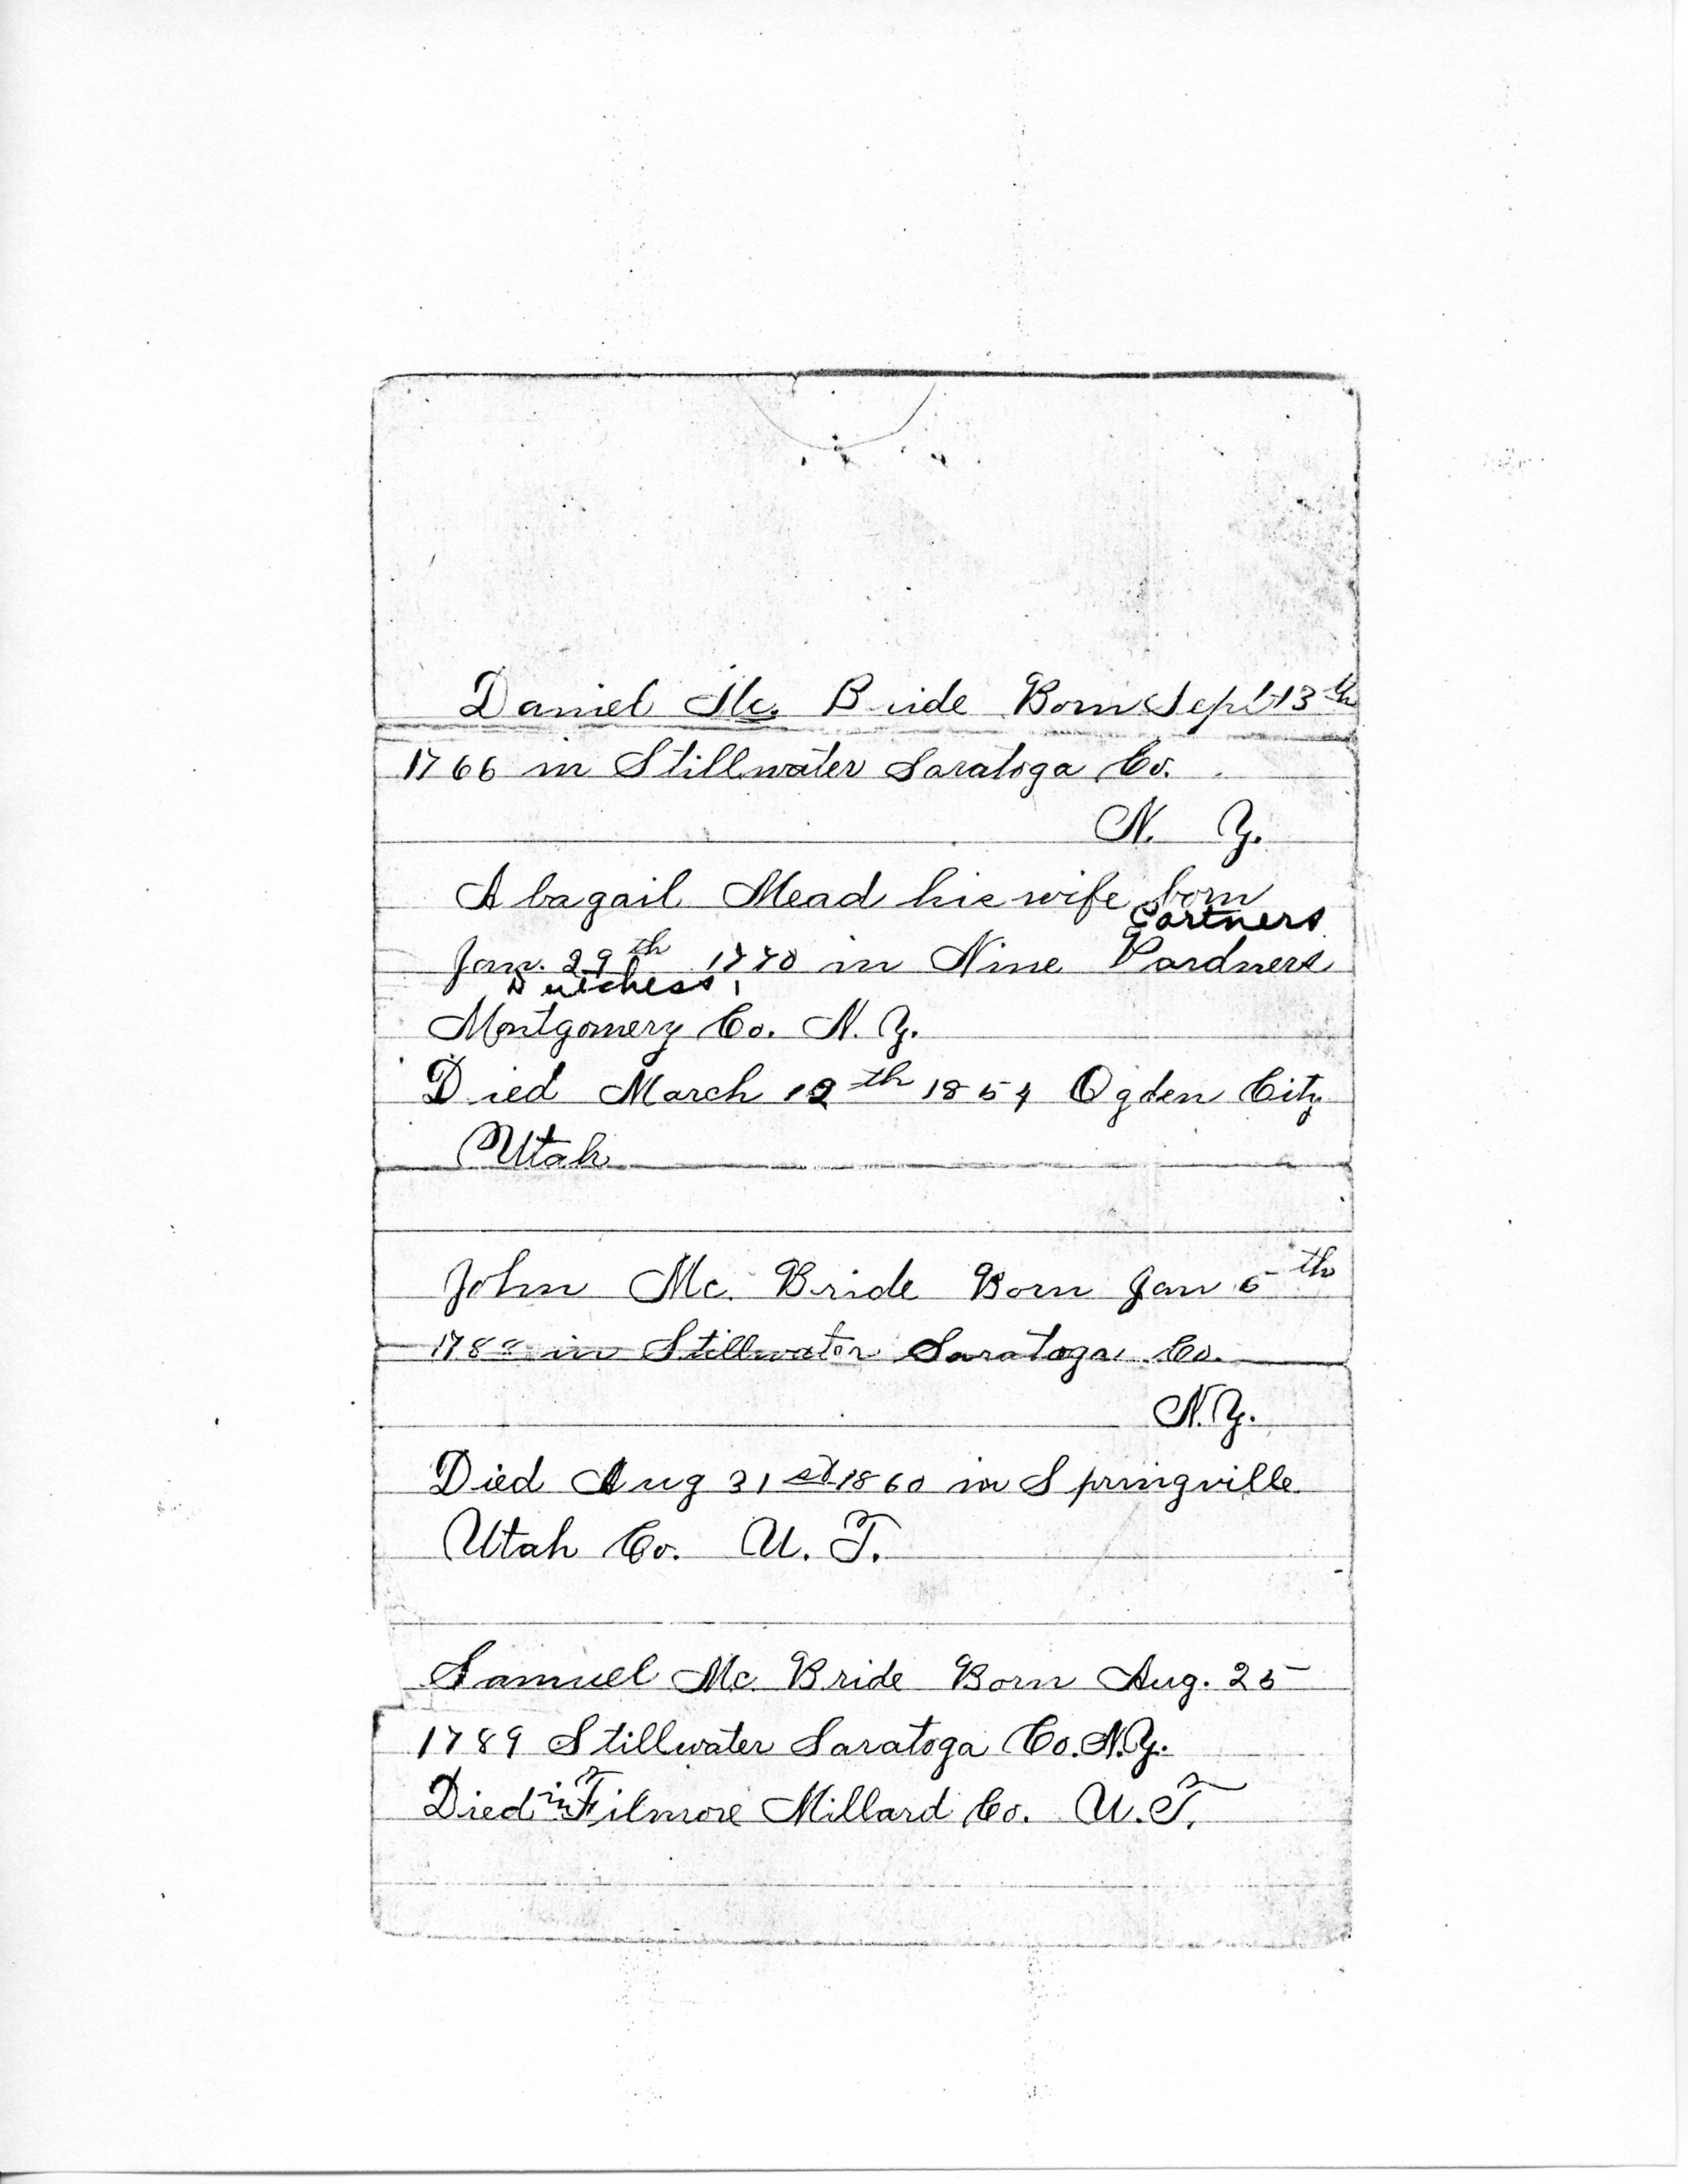 Daniel Mc. Bride Born Sept 13th
1766 in Stillwater Saratoga Co.
N. Y.
Abagail Mead his wife born
Partners
Jan. 29th 1770 in Nine Pardners
Dutchess
Montgomery Co. N. Y.
Died March 12th 1854 Ogden City
Utah
John Mc. Bride Born Jan 5th
1788 in Stillwater Saratoga Co.
N.Y.
Died Aug 31st 1860 in Springville
Utah Co. U. T.
Samuel Mc. Bride Born Aug. 25
1789 Stillwater Saratoga Co. N.Y.
Died in Filmore Millard Co. U.T.